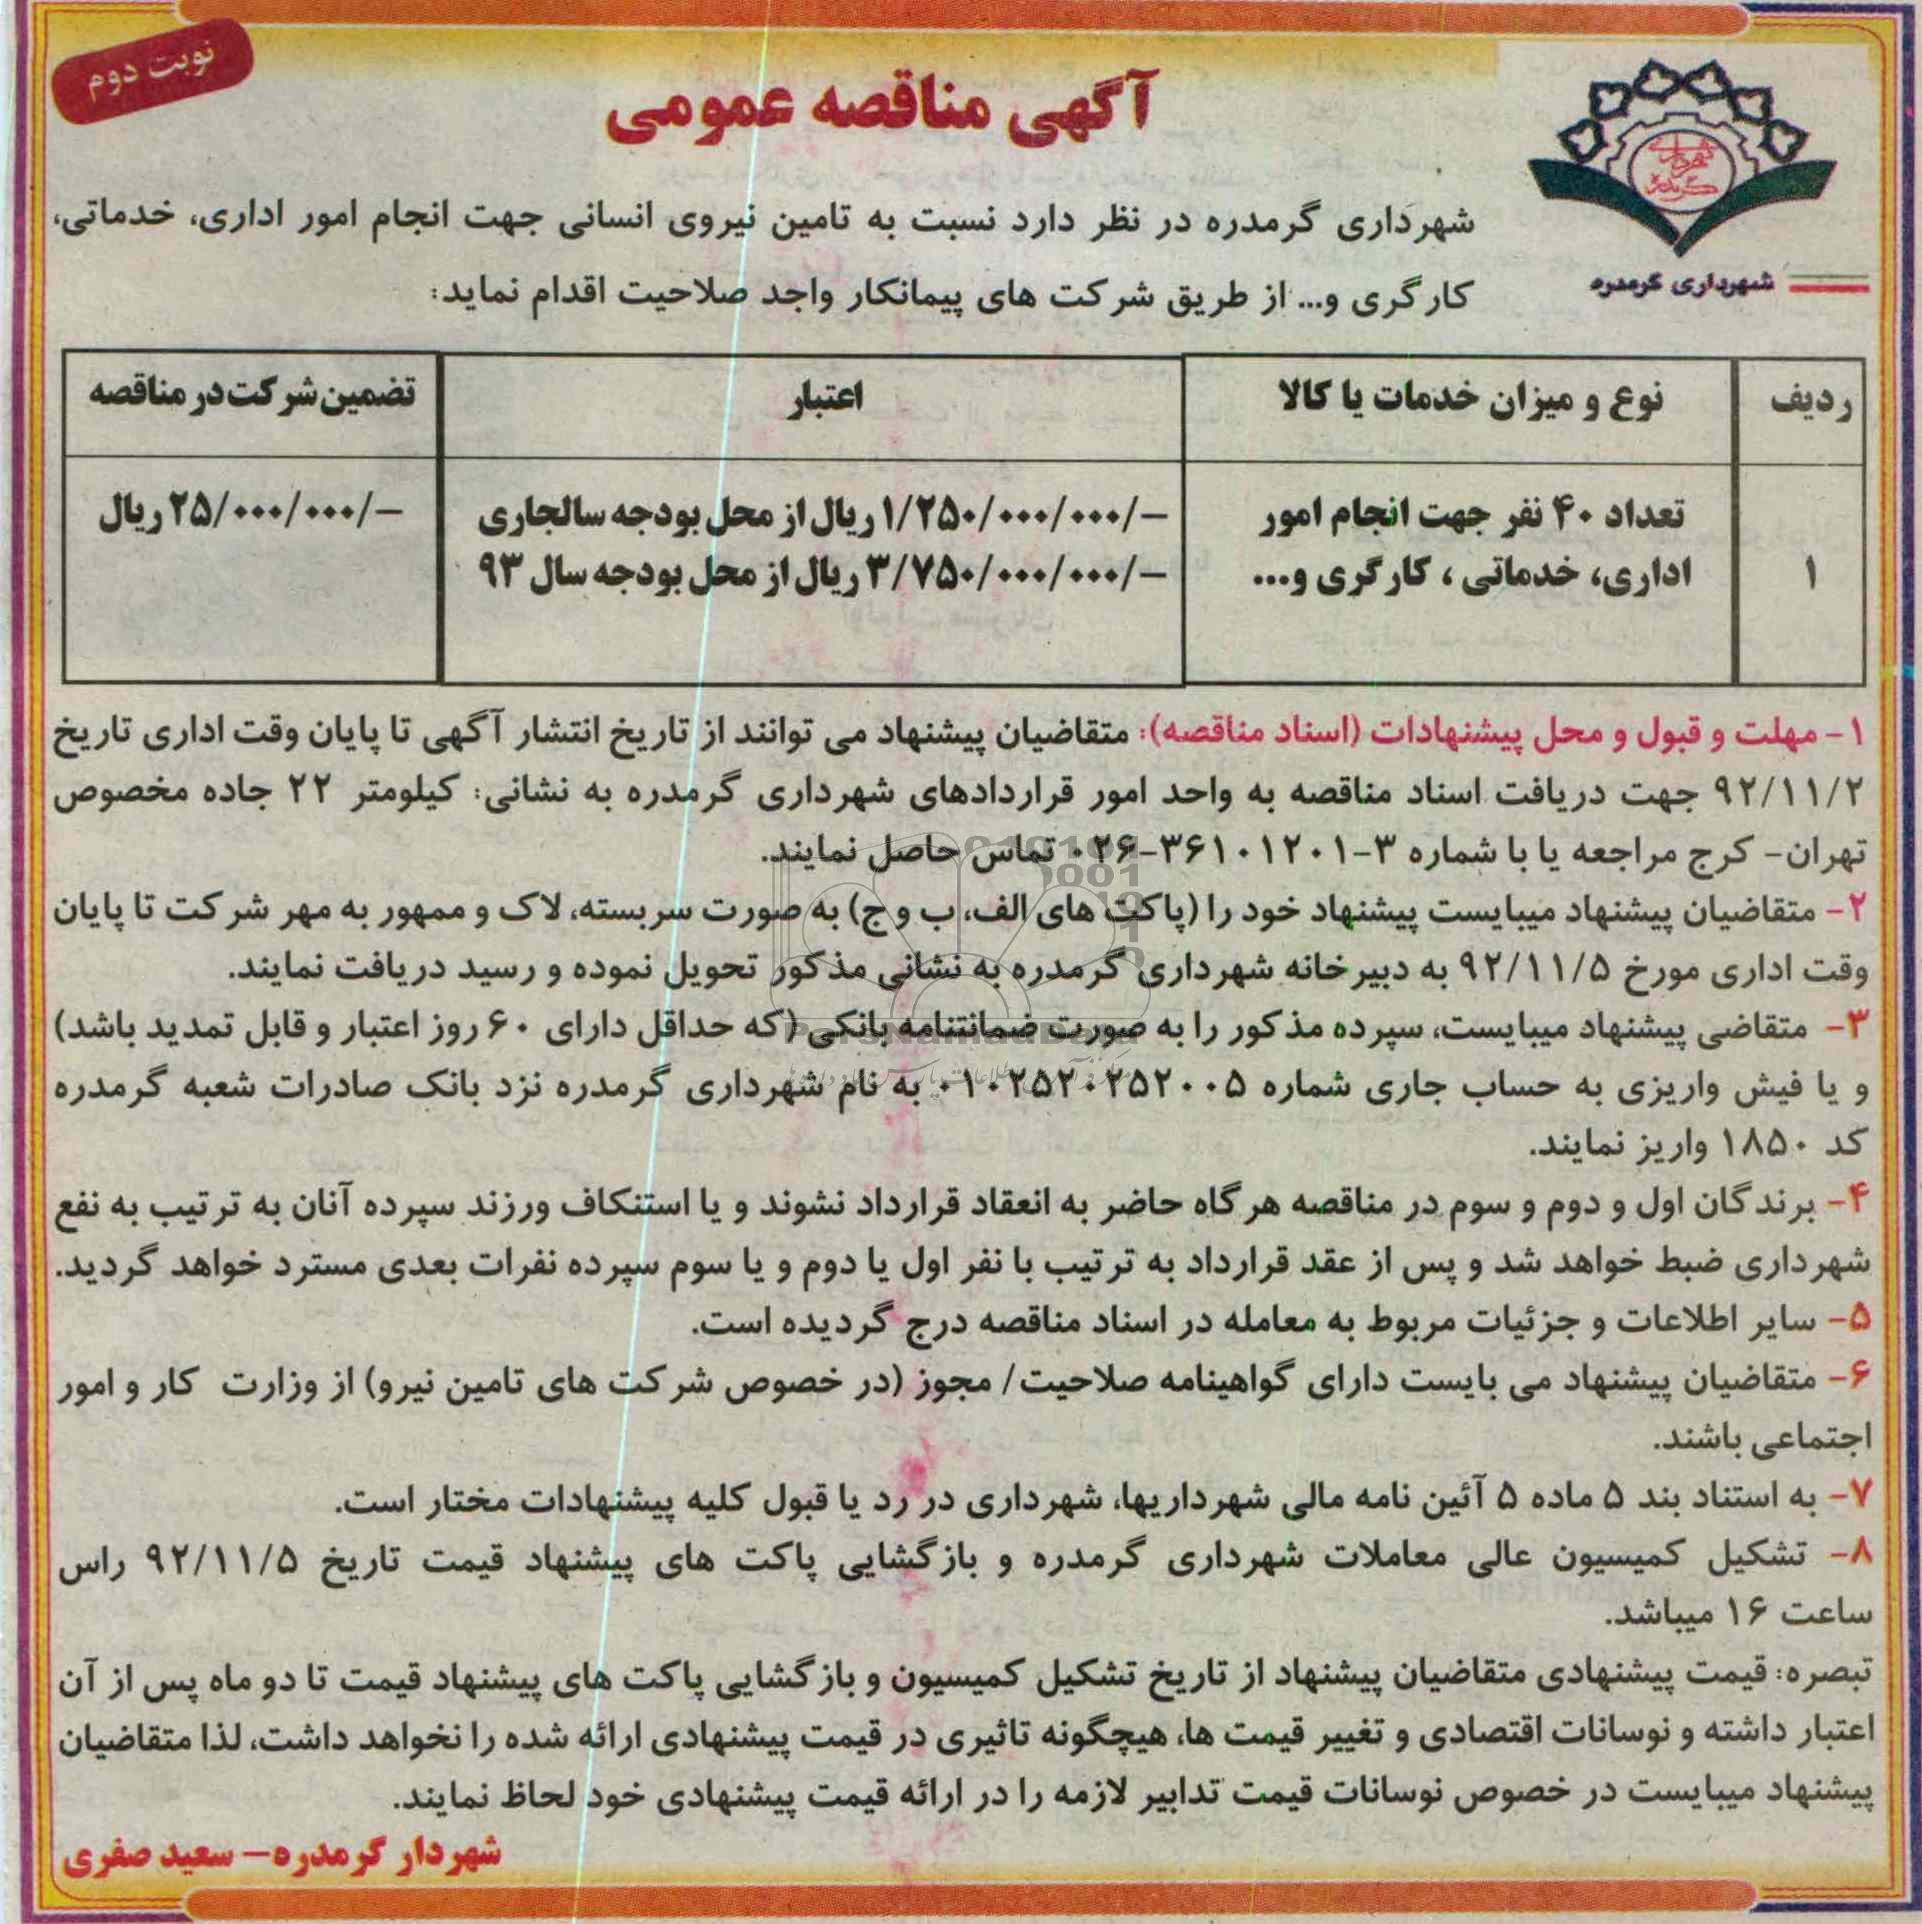 نوبت دوم
آگهی مناقصه عمومی
شهرداری گرمدره
شهرداری گرمدره
شهرداری گرمدره در نظر دارد نسبت به تامین نیروی انسانی جهت انجام امور اداری، خدماتی،
کارگری و... از طریق شرکت های پیمانکار واجد صلاحیت اقدام نماید:
ردیف نوع و میزان خدمات یا کالا اعتبار تضمین شرکت در مناقصه
تعداد ۴۰ نفر جهت انجام امور ۱/۲۵۰/۰۰۰/۰۰۰/- ریال از محل بودجه سالجاری ۲۵/۰۰۰/۰۰۰/- ریال
۱ اداری، خدماتی ، کارگری و... ۳/۷۵۰/۰۰۰/۰۰۰/- ریال از محل بودجه سال ۹۳
۱- مهلت و قبول و محل پیشنهادات (اسناد مناقصه): متقاضیان پیشنهاد می توانند از تاریخ انتشار آگهی تا پایان وقت اداری تاریخ
۹۲/۱۱/۲ جهت دریافت اسناد مناقصه به واحد امور قراردادهای شهرداری گرمدره به نشانی: کیلومتر ۲۲ جاده مخصوص
تهران- کرج مراجعه یا با شماره ۳-۳۶۱۰۱۲۰۱-۰۲۶ تماس حاصل نمایند.
۲- متقاضیان پیشنهاد میبایست پیشنهاد خود را (پاکت های الف، ب و ج) به صورت سربسته، لاک و ممهور به مهر شرکت تا پایان
وقت اداری مورخ ۹۲/۱۱/۵ به دبیرخانه شهرداری گرمدره به نشانی مذکور تحویل نموده و رسید دریافت نمایند.
۳- متقاضی پیشنهاد میبایست، سپرده مذکور را به صورت ضمانتنامه بانکی (که حداقل دارای ۶۰ روز اعتبار و قابل تمدید باشد)
و یا فیش واریزی به حساب جاری شماره ۰۱۰۲۵۲۰۲۵۲۰۰۵ به نام شهرداری گرمدره نزد بانک صادرات شعبه گرمدره
کد ۱۸۵۰ واریز نمایند.
۴- برندگان اول و دوم و سوم در مناقصه هرگاه حاضر به انعقاد قرارداد نشوند و یا استنکاف ورزند سپرده آنان به ترتیب به نفع
شهرداری ضبط خواهد شد و پس از عقد قرارداد به ترتیب با نفر اول یا دوم و یا سوم سپرده نفرات بعدی مسترد خواهد گردید.
۵- سایر اطلاعات و جزئیات مربوط به معامله در اسناد مناقصه درج گردیده است.
۶- متقاضیان پیشنهاد می بایست دارای گواهینامه صلاحیت/ مجوز (در خصوص شرکت های تامین نیرو) از وزارت کار و امور
اجتماعی باشند.
۷- به استناد بند ۵ ماده ۵ آئین نامه مالی شهرداریها، شهرداری در رد یا قبول کلیه پیشنهادات مختار است.
۸- تشکیل کمیسیون عالی معاملات شهرداری گرمدره و بازگشایی پاکت های پیشنهاد قیمت تاریخ ۹۲/۱۱/۵ راس
ساعت ۱۶ میباشد.
تبصره: قیمت پیشنهادی متقاضیان پیشنهاد از تاریخ تشکیل کمیسیون و بازگشایی پاکت های پیشنهاد قیمت تا دو ماه پس از آن
اعتبار داشته و نوسانات اقتصادی و تغییر قیمت ها، هیچگونه تاثیری در قیمت پیشنهادی ارائه شده را نخواهد داشت، لذا متقاضیان
پیشنهاد میبایست در خصوص نوسانات قیمت تدابیر لازمه را در ارائه قیمت پیشنهادی خود لحاظ نمایند.
شهردار گرمدره– سعید صفری